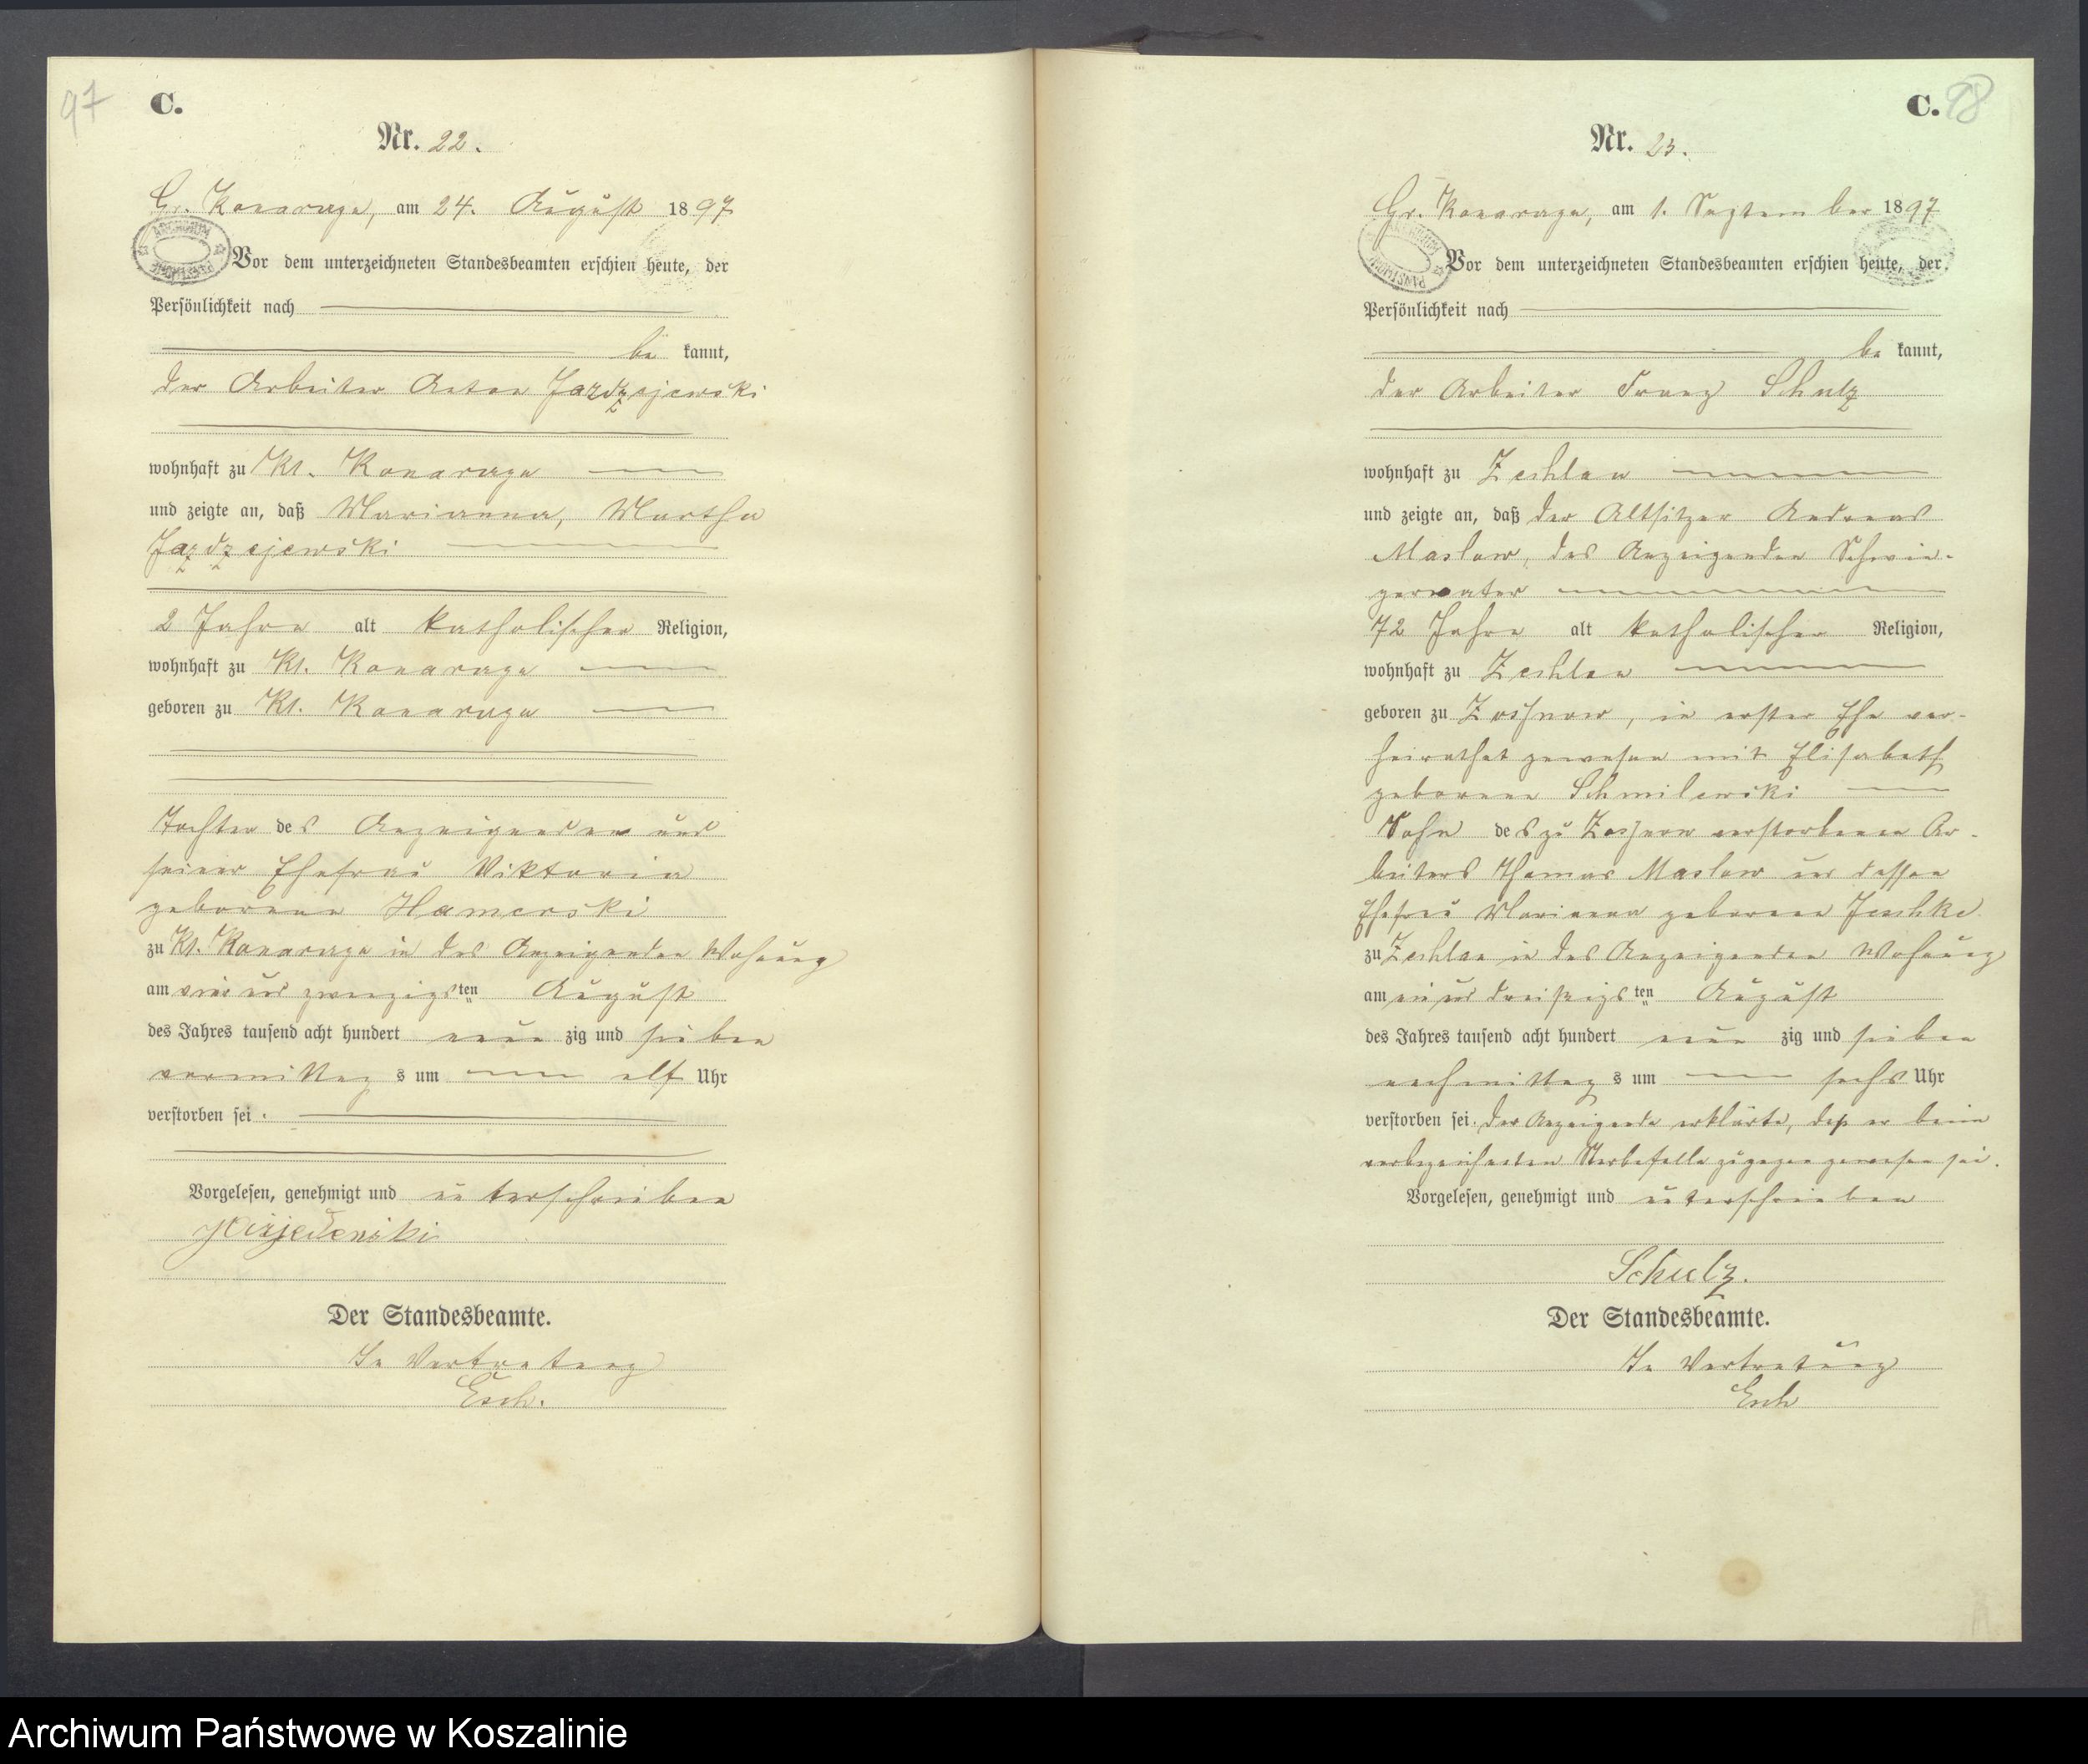 97
C.
Nr. 22.
Gr. Konarczyn, am 24. August 1897
Vor dem unterzeichneten Standesbeamten erschien heute, der
Persönlichkeit nach
be kannt,
der Arbeiter Anton Jazdzejewski
wohnhaft zu Kl. Konarczyn
und zeigte an, daß Marianna, Martha
Jazdzejewski
2 Jahre alt katholischer Religion,
wohnhaft zu Kl. Konarczyn
geboren zu Kl. Konarczyn
Tochter des Anzeigenden und
seiner Ehefrau Viktoria
geborene Hamerski
zu Kl. Konarczyn in des Anzeigenden Wohnung
am vier und zwanzigsten August
des Jahres tausend acht hundert neun zig und sieben
vormittags um elf Uhr
verstorben sei.
Vorgelesen, genehmigt und unterschrieben
Der Standesbeamte.
In Vertretung
Esch.
98
C.
Nr. 23.
Gr. Konarczyn, am 1. September 1897
Vor dem unterzeichneten Standesbeamten erschien heute, der
Persönlichkeit nach
be kannt,
der Arbeiter Franz Schulz
wohnhaft zu Zechlau
und zeigte an, daß der Altsitzer Andreas
Maslow, des Anzeigenden Schwie-
gervater
72 Jahre alt katholischer Religion,
wohnhaft zu Zechlau
geboren zu, in erster Ehe ver-
heirathet gewesen mit Elisabeth
geborene Schmilewski
Sohn des zu verstorbenen Ar-
beiters Thomas Maslow und dessen
Ehefrau Marianna geborene Jeschke
zu Zechlau in des Anzeigenden Wohnung
am ein und dreißigsten August
des Jahres tausend acht hundert neun zig und sieben
nachmittags um sechs Uhr
verstorben sei. Der Anzeigende erklärte, daß er beim
vorbezeichneten Sterbefalle zugegen gewesen sei.
Vorgelesen, genehmigt und unterschrieben
Schulz.
Der Standesbeamte.
In Vertretung
Esch
Archiwum Państwowe w Koszalinie